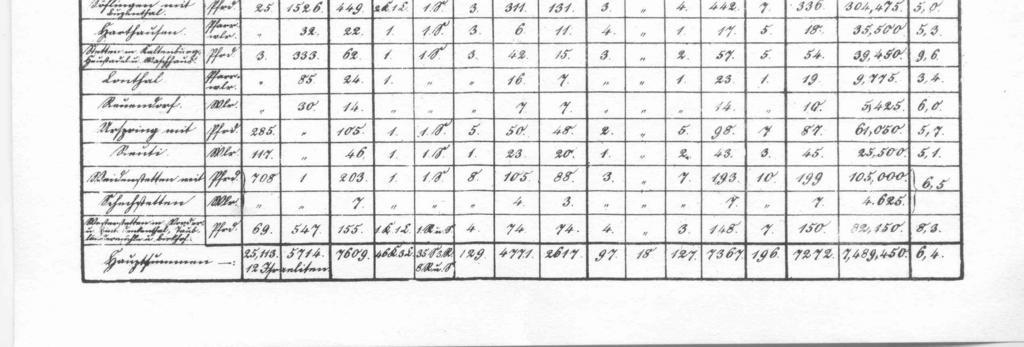 Söflingen mit Pfrd. 25. 1526. 449. 2K.1L. 1.S. 3. 311. 131. 3. „ 4. 442. 7. 336. 304,475. 5,0.
Harthausen. Pfarr- wlr. „ 32. 22. 1. 1.S. 3. 6. 11. 4. „ 1. 17. 5. 18. 35,500. 5,3.
Stetten m. Kaltenburg, Pfrd. 3. 333. 62. 1. 1.S. 3. 42. 15. 3. „ 2. 57. 5. 54. 39,450. 9,6.
Lonthal Pfarr- wlr. „ 85. 24. 1. „ „ 16. 7. „ „ 1. 23. 1. 19. 9,775. 3,4.
Reuendorf. Wlr. „ 30. 14. „ „ „ 7. 7. „ „ „ 14. „ 10. 5,425. 6,0.
Urspring mit Pfrd. 285. „ 105. 1. 1.S. 5. 50. 48. 2. „ 5. 98. 7. 87. 61,050. 5,7.
Reuti. Wlr. 117. „ 46. 1. 1.S. 1. 23. 20. 1. „ 2. 43. 3. 45. 25,500. 5,1.
Weidenstetten mit Pfrd. 708. 1. 203. 1. 1.S. 8. 105. 88. 3. „ 7. 193. 10. 199. 105,000. 6,5
Schechstetten Wlr. „ „ 7. „ „ „ 4. 3. „ „ „ 7. „ 7. 4.625.
Westerstetten m. Vorder- Pfrd. 69. 547. 155. 1K.1L. 1K.u.S. 4. 74. 74. 4. „ 3. 148. 7. 150. 82,150. 8,3.
Hauptsummen —: 25,113. 5714. 7609. 46K.3L. 35S.3K. 129. 4771. 2617. 97. 18. 127. 7367. 196. 7272. 7,489,450. 6,4.
12 Israeliten. 8K.u.S.